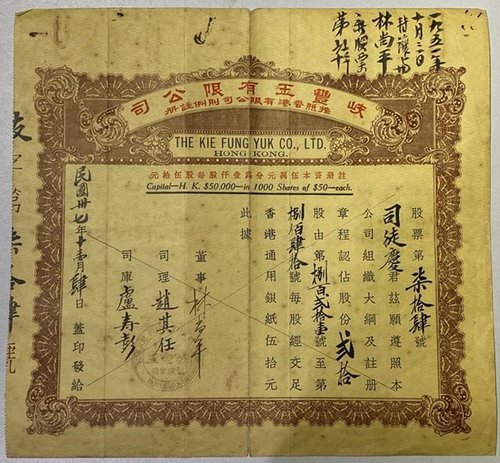 一九五一年
十月三十日
林尚平
司公限有玉豐岐
册註例則司公限有港香照遵
THE KIE FUNG YUK CO., LTD.
HONG KONG.
元拾伍股每股仟壹為分元萬伍本資册註
Capital—H. K. $50,000—in 1000 Shares of $50—each.
股票第柒拾肆號
司徒慶君茲願遵照本
公司組織大綱及註册
章程認佔股份貳拾
股由第捌百貳拾壹號至第
捌佰肆拾號每股經交足
香港通用銀紙伍拾元
此據
董事林尚平
司理趙其任
司庫盧壽彭
民國卅七年十一月肆日蓋印發給